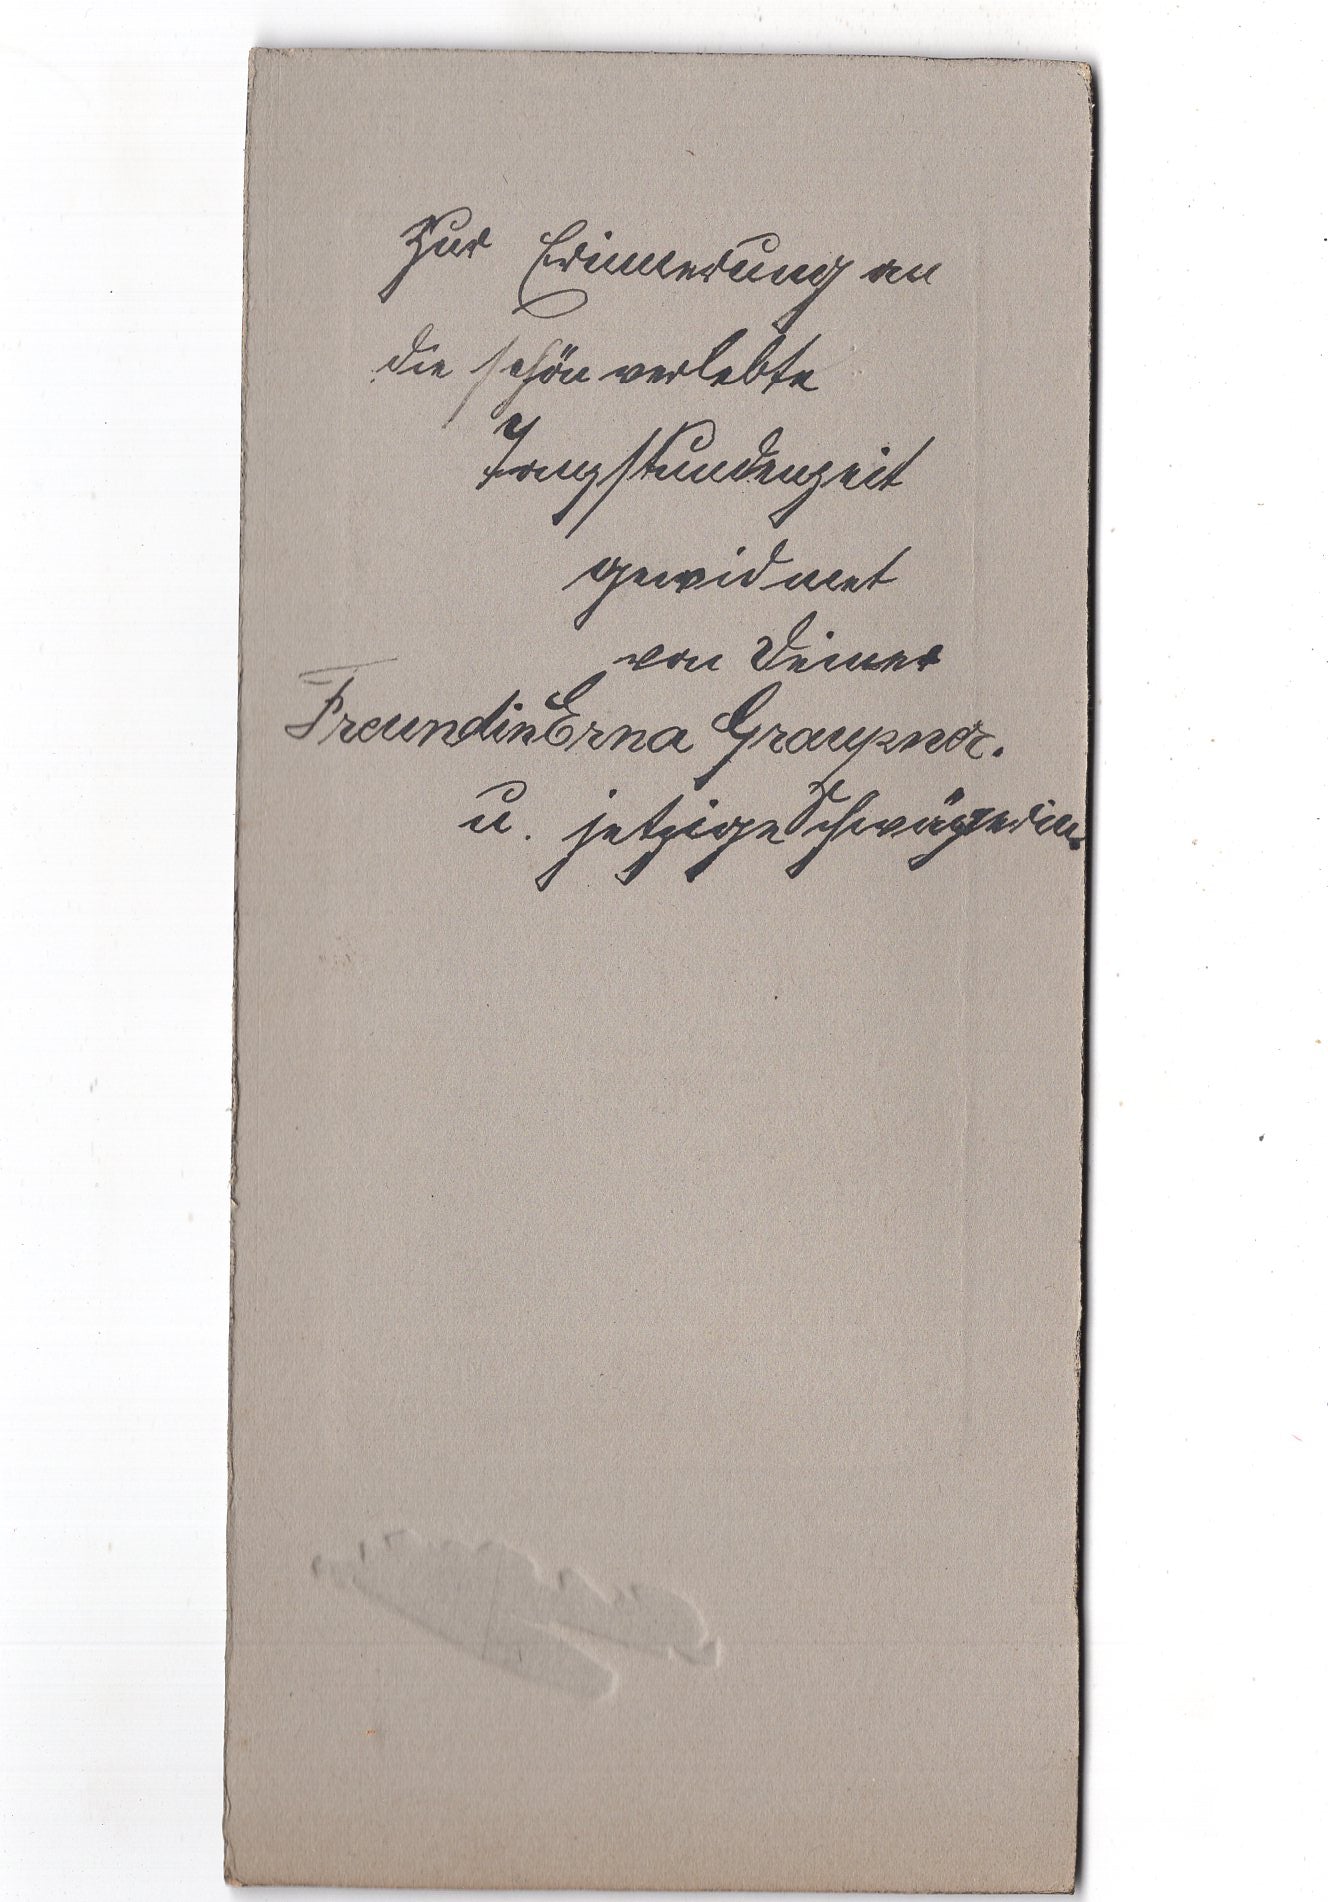 Zur Erinnerung an
die schön verlebte
Tanzstundenzeit
gewidmet
von Deiner
Freundin Erna Graupner.
u. jetzige Schwägerin.